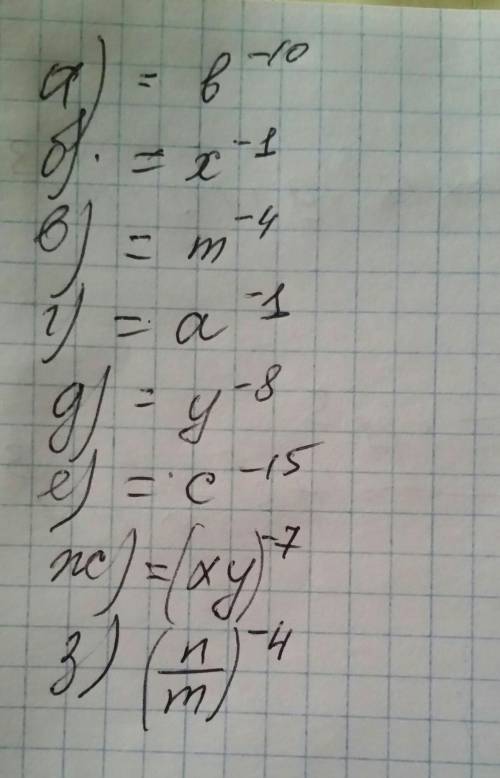 а) = b⁻¹⁰
б). = x⁻¹
в) = m⁻⁴
г) = a⁻¹
д) = y⁻⁸
е) = c⁻¹⁵
ж) = (xy)⁻⁷
з) (n/m)⁻⁴